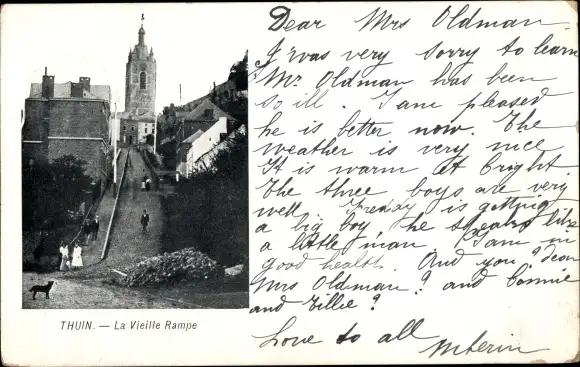 Dear Mrs Oldman
I was very sorry to learn
Mr. Oldman has been
so ill. I am pleased
he is better now. The
weather is very nice
It is warm et bright.
The three boys are very
well. Freddy is getting
a big boy, he speaks like
a little man. I am in
good health. And you dear
Mrs Oldman? and Connie
and Tillie?
Love to all
THUIN. — La Vieille Rampe